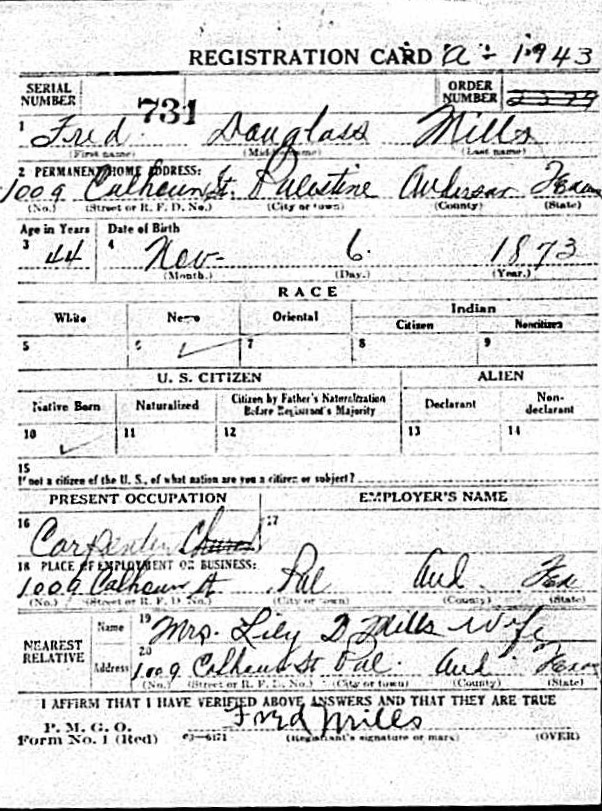 REGISTRATION CARD a - 1943
SERIAL NUMBER 731 ORDER NUMBER
1 Fred Douglass Mills
(First name) (Middle name) (Last name)
2 PERMANENT HOME ADDRESS:
1009 Calhoun St. Palestine Anderson Texas
(No.) (Street or R. F. D. No.) (City or town) (County) (State)
Age in Years Date of Birth
3 44 4 Nov- 6. 1873
(Month.) (Day.) (Year.)
RACE
White Negro Oriental Indian
Citizen Noncitizen
5 6 ✓ 7 8 9
U. S. CITIZEN ALIEN
Native Born Naturalized Citizen by Father's Naturalization Before Registrant's Majority Declarant Non-declarant
10 ✓ 11 12 13 14
15
If not a citizen of the U. S., of what nation are you a citizen or subject?
PRESENT OCCUPATION EMPLOYER'S NAME
16 Carpenter 17
18 PLACE OF EMPLOYMENT OR BUSINESS:
1009 Calhoun St Pal And. Tex
(No.) (Street or R. F. D. No.) (City or town) (County) (State)
NEAREST RELATIVE Name 19 Mrs. Lily D Mills Wife
Address 20 1009 Calhoun St Pal. And Texas
(No.) (Street or R. F. D. No.) (City or town) (County) (State)
I AFFIRM THAT I HAVE VERIFIED ABOVE ANSWERS AND THAT THEY ARE TRUE
P. M. G. O.
Form No. 1 (Red) 03-6171 Fred Mills
(Registrant's signature or mark) (OVER)